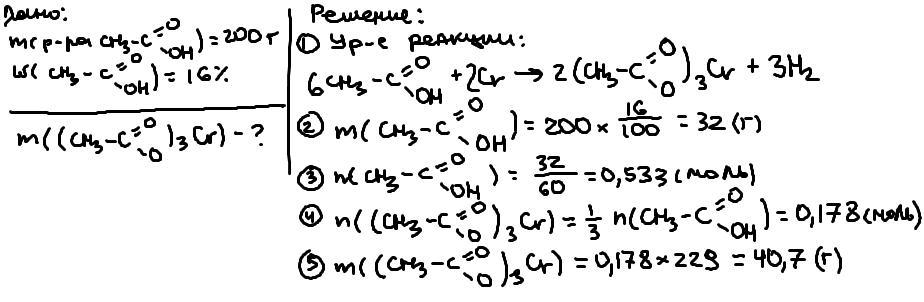 Дано:
m(р-ра CH₃-C(=O)-OH) = 200 г
ω(CH₃-C(=O)-OH) = 16%
m((CH₃-C(=O)-O)₃Cr) - ?
Решение:
① Ур-е реакции:
6CH₃-C(=O)-OH + 2Cr → 2(CH₃-C(=O)-O)₃Cr + 3H₂
② m(CH₃-C(=O)-OH) = 200 × 16/100 = 32 (г)
③ n(CH₃-C(=O)-OH) = 32/60 = 0,533 (моль)
④ n((CH₃-C(=O)-O)₃Cr) = 1/3 n(CH₃-C(=O)-OH) = 0,178 (моль)
⑤ m((CH₃-C(=O)-O)₃Cr) = 0,178 × 229 = 40,7 (г)